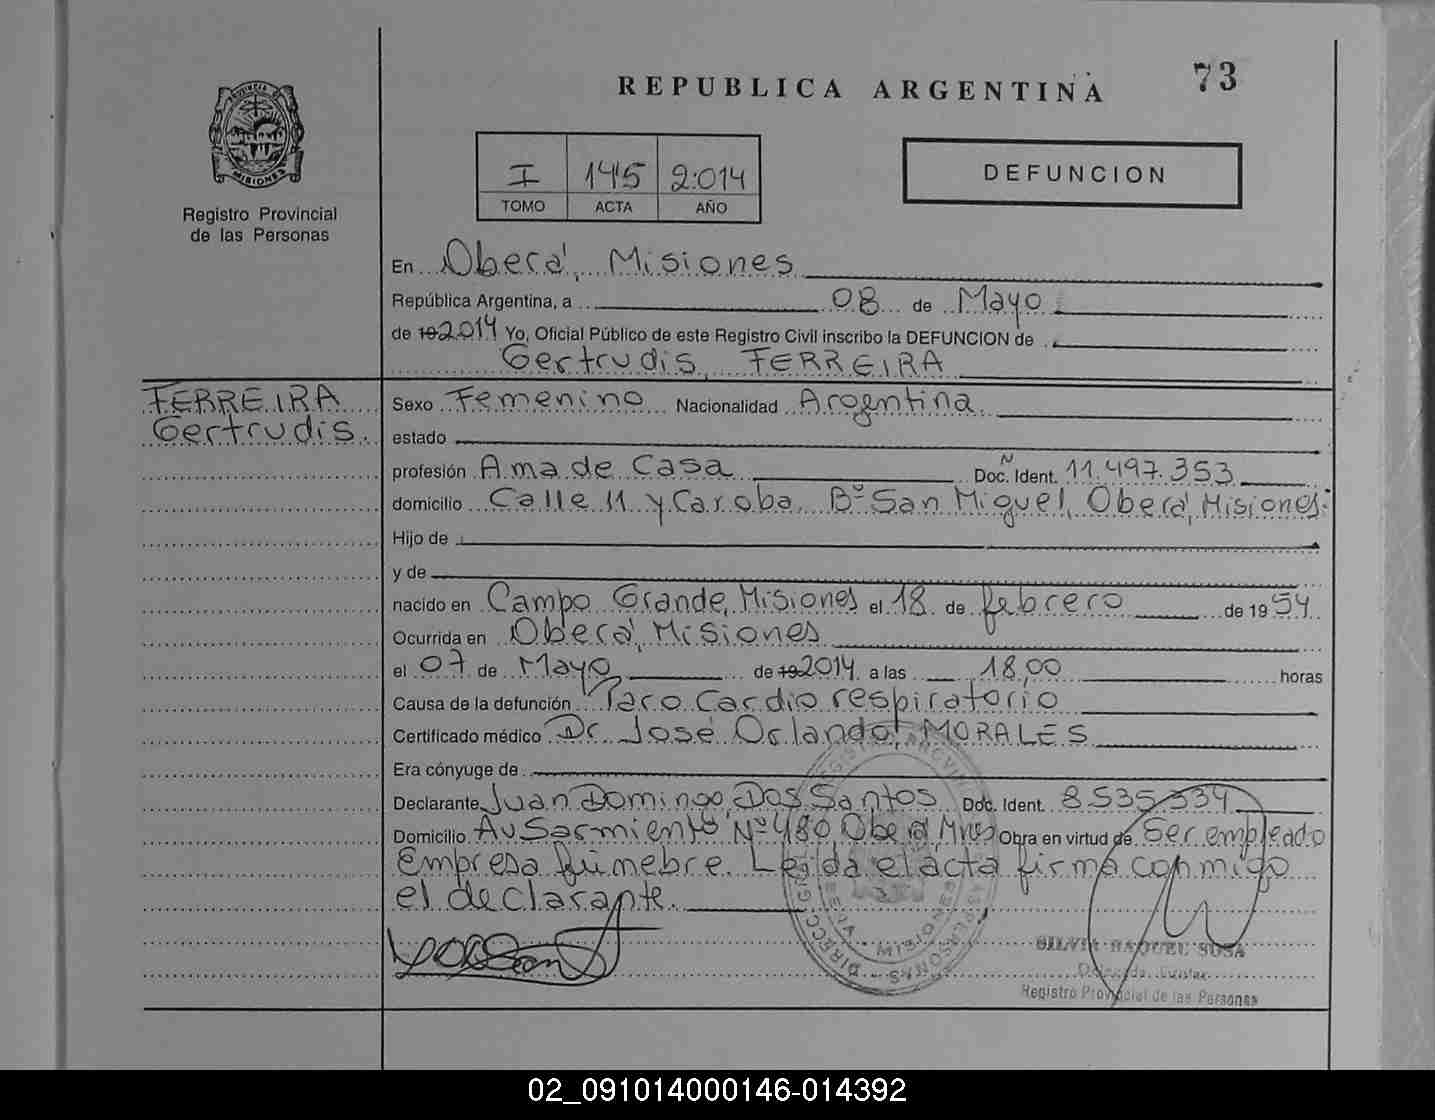 73
REPUBLICA ARGENTINA
PROVINCIA DE
MISIONES
Registro Provincial
de las Personas
I 145 2.014
TOMO ACTA AÑO
DEFUNCION
En Oberá, Misiones
República Argentina, a 08 de Mayo
de 19 2014 Yo, Oficial Público de este Registro Civil inscribo la DEFUNCION de
Gertrudis, FERREIRA
FERREIRA
Gertrudis.
Sexo Femenino Nacionalidad Argentina
estado
profesión Ama de Casa Doc. Nº Ident. 11.497.353
domicilio Calle 11 y Caroba. Bº San Miguel, Oberá, Misiones.
Hijo de
y de
nacido en Campo Grande, Misiones el 18 de febrero de 1954
Ocurrida en Oberá, Misiones
el 07 de Mayo de 19 2014 a las 18,00 horas
Causa de la defunción Paro Cardio respiratorio
Certificado médico Dr. José Orlando, MORALES
Era cónyuge de
Declarante Juan Domingo Dos Santos Doc. Ident. 8.535.334
Domicilio Av Sarmiento Nº 480 Oberá, Mnes Obra en virtud de Ser empleado
Empresa fúnebre. Leída el acta firma conmigo
el declarante.
SILVIA RAQUEL SOSA
Delegada
Registro Provincial de las Personas
MISIONES
02_091014000146-014392